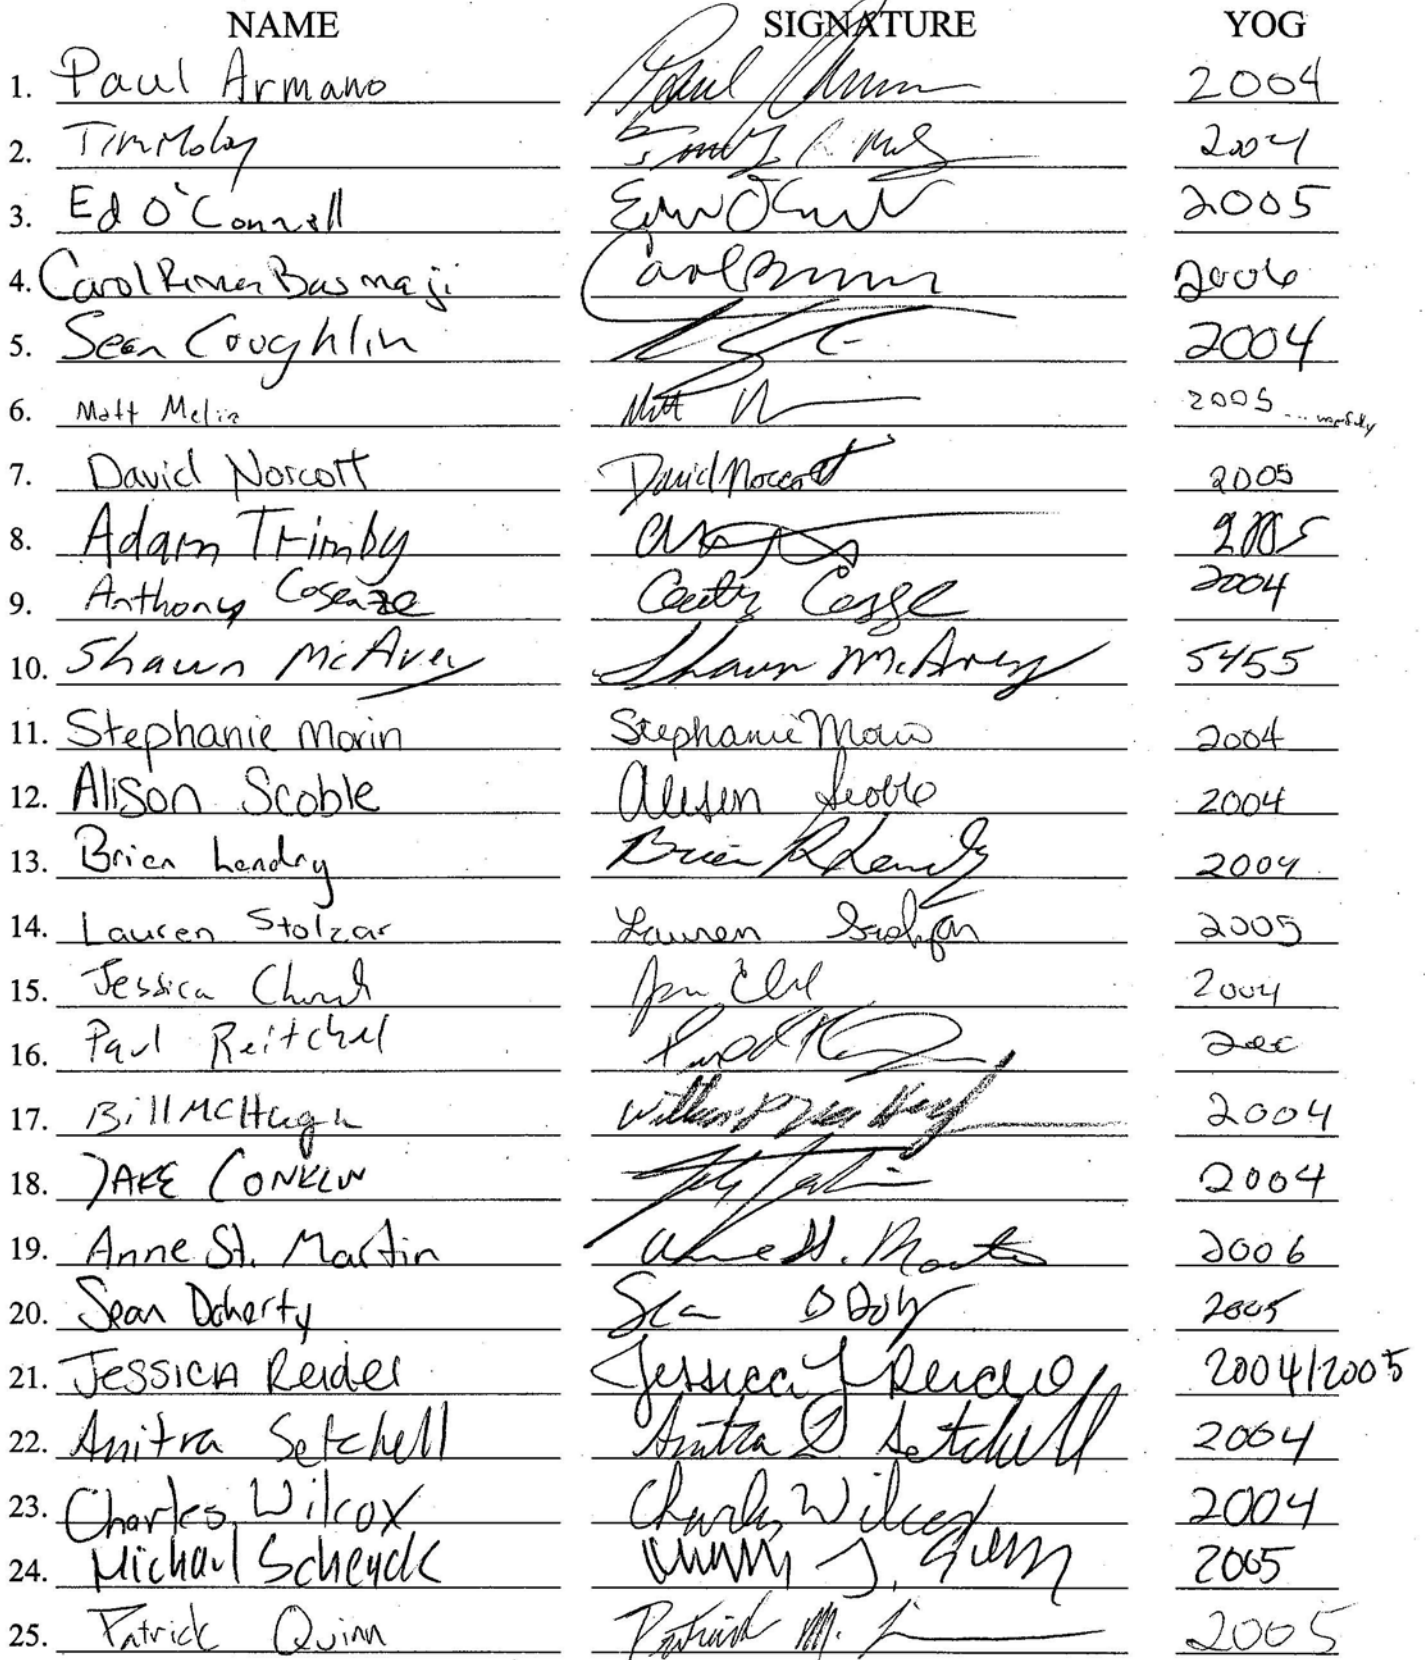 NAME SIGNATURE YOG
1. Paul Armano Paul 2004
2. Tim 2004
3. Ed O'Connell 2005
4. Carol Basmaji Carol 2006
5. Sean Coughlin 2004
6. Matt Melia Matt 2005 ...
7. David Norcott David Norcott 2005
8. Adam Trimby 2005
9. Anthony 2004
10. Shawn McAvey Shawn McAvey 5455
11. Stephanie Morin Stephanie Morin 2004
12. Alison Scoble Alison Scoble 2004
13. Brian Landry Brian R Landry 2004
14. Lauren Stolzar Lauren Stolzar 2005
15. Jessica Church 2004
16. Paul Reitchel
17. Bill McHugh William 2004
18. JAKE CONKLIN 2004
19. Anne St. Martin Anne St. Martin 2006
20. Sean Doherty Sean 2005
21. JESSICA Reider Jessica J Reider 2004/2005
22. Anitra Setchell Anitra Setchell 2004
23. Charles Wilcox Charles Wilcox 2004
24. Michael Scheyck 2005
25. Patrick Quinn Patrick M. 2005